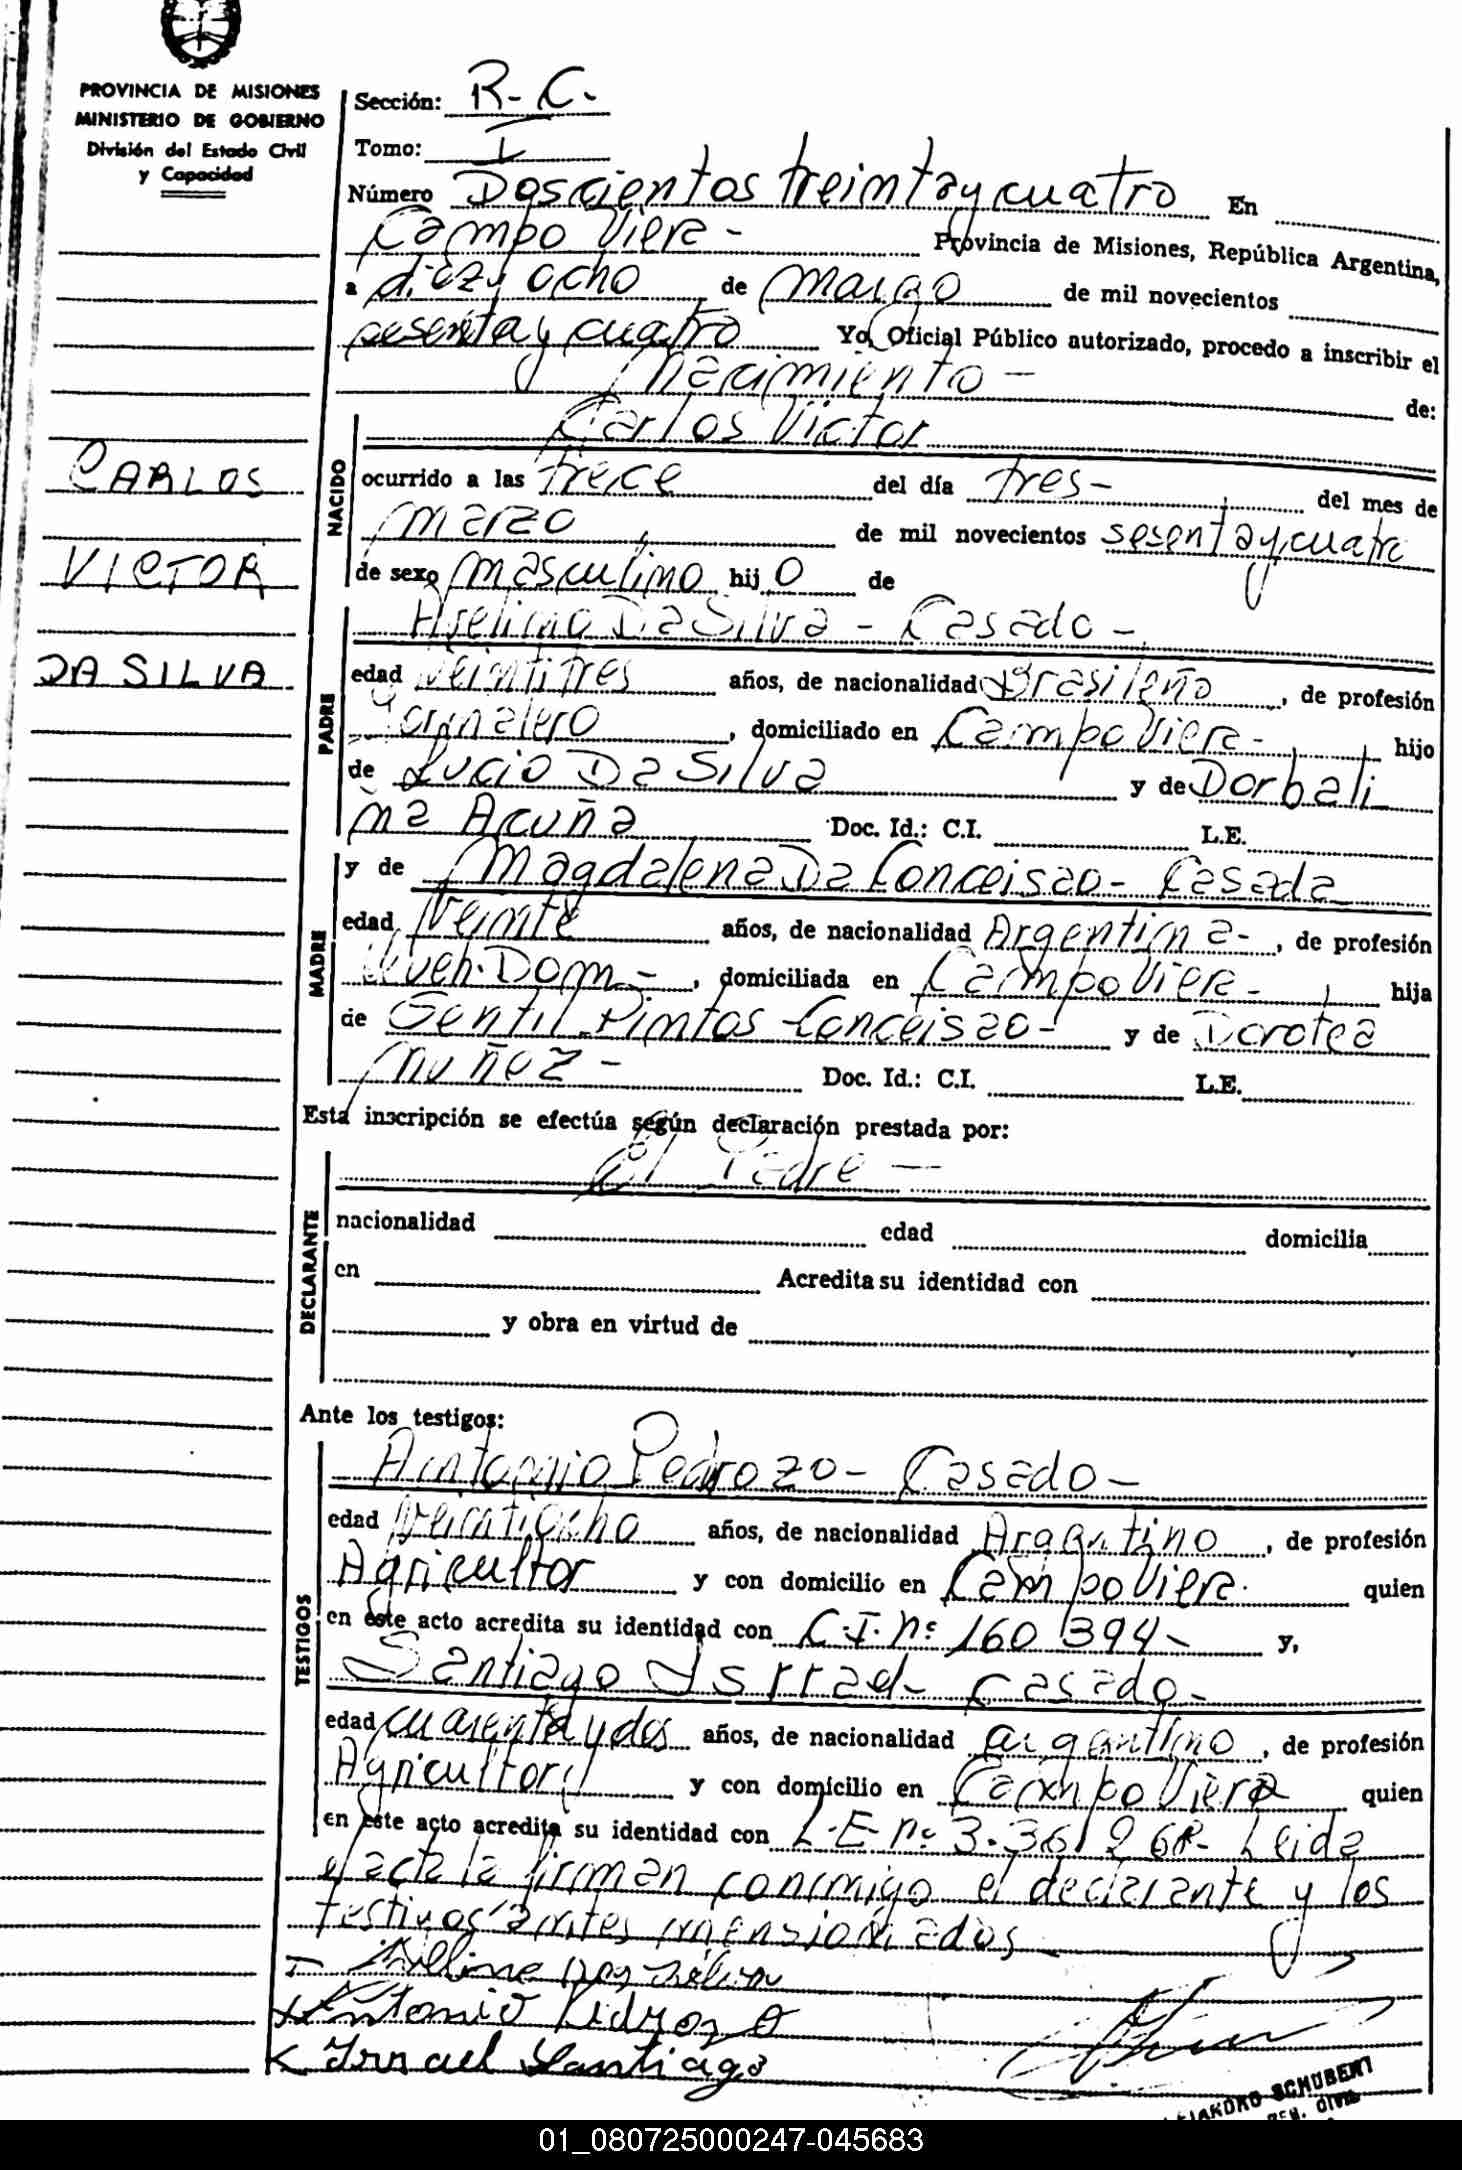 PROVINCIA DE MISIONES
MINISTERIO DE GOBIERNO
División del Estado Civil
y Capacidad
CARLOS
VICTOR
DA SILVA
Sección: R-C-
Tomo: I
Número Doscientos treinta y cuatro En
Campo Viera - Provincia de Misiones, República Argentina,
a diez y ocho de marzo de mil novecientos
sesenta y cuatro Yo, Oficial Público autorizado, procedo a inscribir el
nacimiento - de:
Carlos Victor
NACIDO
ocurrido a las trece del día tres- del mes de
marzo de mil novecientos sesenta y cuatro
de sexo masculino hijo de
Aselino Da Silva - Casado -
PADRE
edad veintitres años, de nacionalidad Brasileño, de profesión
Jornalero, domiciliado en Campo Viera- hijo
de Lucio Da Silva y de Dorbali
na Acuña Doc. Id.: C.I. L.E.
MADRE
y de Magdalena Da Conceisao- Casada
edad Veinte años, de nacionalidad Argentina-, de profesión
Queh. Dom-, domiciliada en Campo Viera- hija
de Gentil Pintos Conceisao- y de Dorotea
Muñez - Doc. Id.: C.I. L.E.
Esta inscripción se efectúa según declaración prestada por:
El Padre —
DECLARANTE
nacionalidad edad domicilia
en Acredita su identidad con
y obra en virtud de
Ante los testigos:
TESTIGOS
Antonio Pedrozo- Casado-
edad veintiocho años, de nacionalidad Argentino, de profesión
Agricultor y con domicilio en Campo Viera. quien
en este acto acredita su identidad con C.I. nº 160394- y,
Santiago Isrrael- Casado-
edad cuarenta y dos años, de nacionalidad argentino, de profesión
Agricultor y con domicilio en Campo Viera quien
en este acto acredita su identidad con L.E. nº 3.361.268- Leida
el acta la firman conmigo el declarante y los
testigos antes mensionados
Antonio Pedrozo
Isrrael Santiago
SCHUBERT
REG. CIVIL
01_080725000247-045683